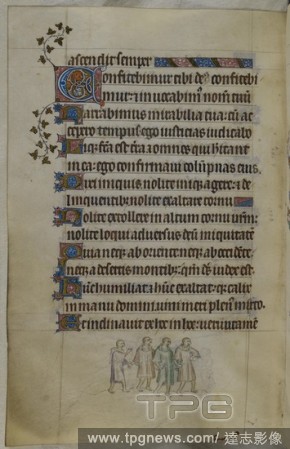 ascendit semper
Confitebimur tibi ds confitebi
mur: et inuocabimus nomen tuum
Narrabimus mirabilia tua: cum ac
cepero tempus ego iusticias iudicabo
Liquefacta est terra et omnes qui habitant
in ea: ego confirmaui columpnas eius
Dixi iniquis nolite inique agere: et de
linquentibus nolite exaltare cornu
Nolite extollere in altum cornu vestrum:
nolite loqui aduersus deum iniquitatem
Quia neque ab oriente neque ab occidente
neque a desertis montibus: quoniam deus iudex est
Hunc humiliat et hunc exaltat: quia calix
in manu domini uini meri plenus mixto
Et inclinauit ex hoc in hoc: uerumtamen
TPG
www.tpgnews.com / 達志影像